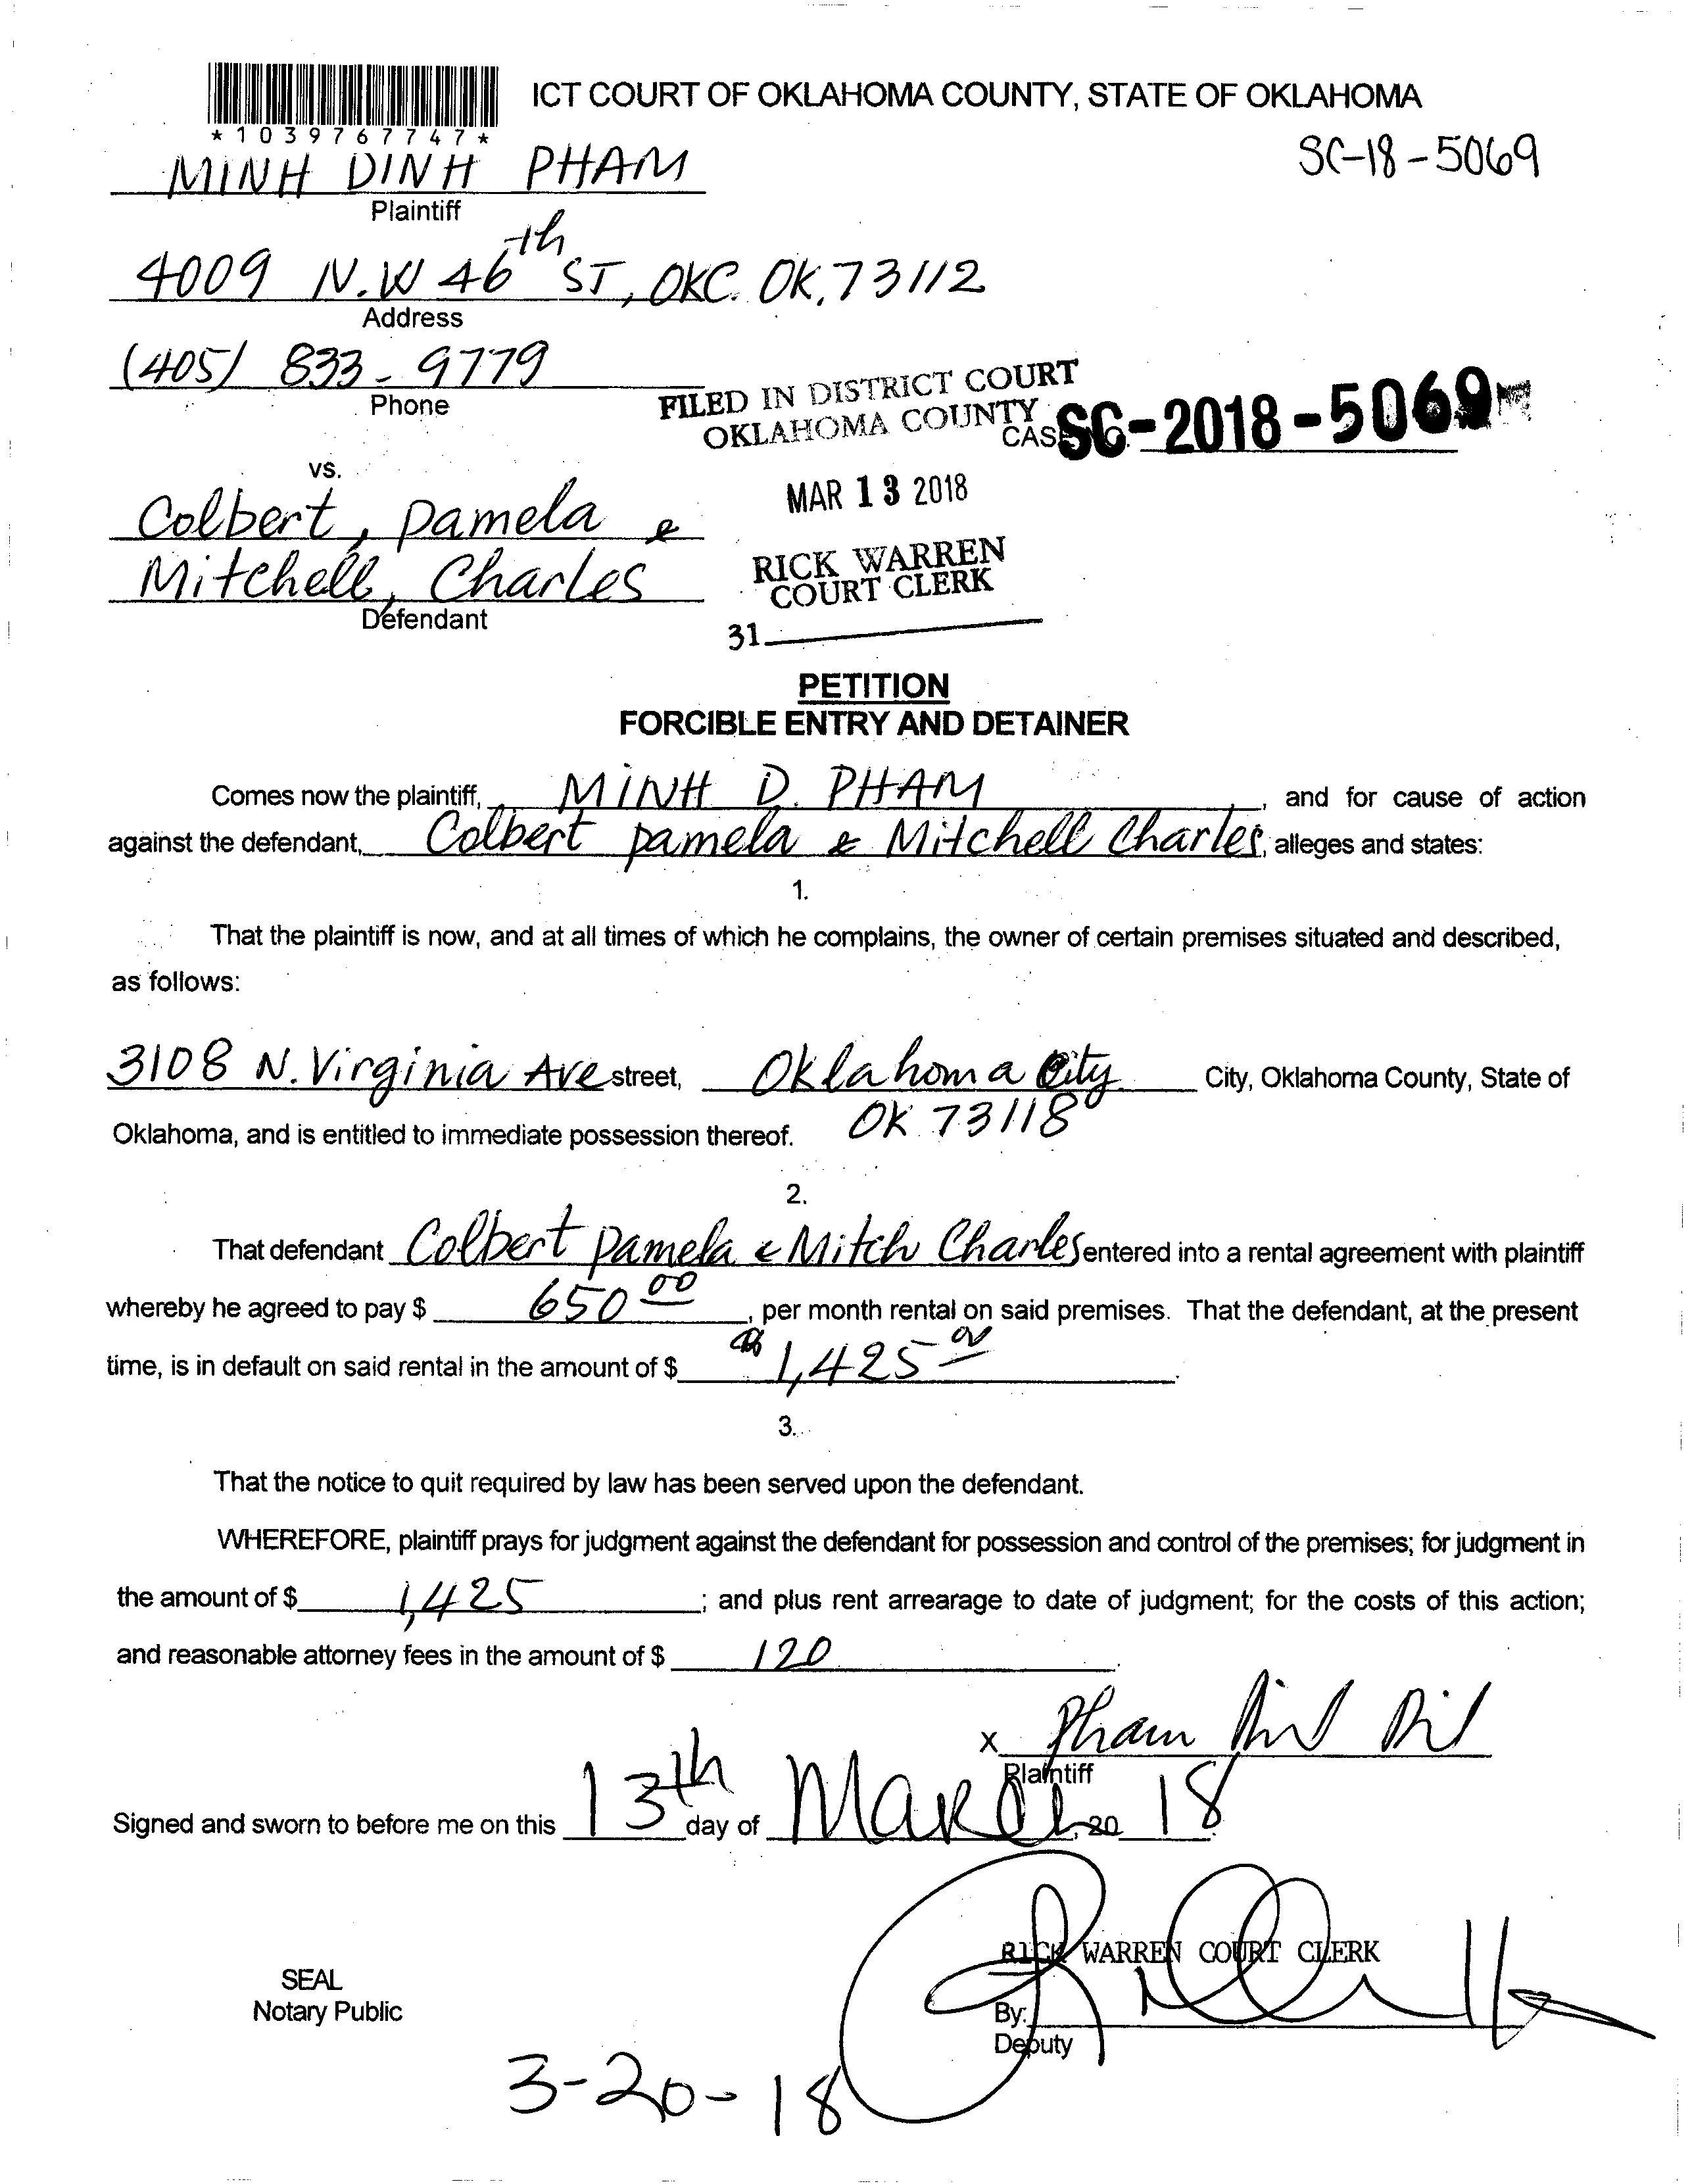 ICT COURT OF OKLAHOMA COUNTY, STATE OF OKLAHOMA
*1039767747*
SC-18-5069
MINH DINH PHAM
Plaintiff
4009 N.W 46th ST, OKC. OK, 73112
Address
(405) 833-9779
Phone
FILED IN DISTRICT COURT
OKLAHOMA COUNTY
CAS SC-2018-5069
vs.
MAR 13 2018
Colbert, pamela &
Mitchell, Charles
Defendant
RICK WARREN
COURT CLERK
31
PETITION
FORCIBLE ENTRY AND DETAINER
Comes now the plaintiff, MINH D. PHAM, and for cause of action
against the defendant, Colbert pamela & Mitchell Charles, alleges and states:
1.
That the plaintiff is now, and at all times of which he complains, the owner of certain premises situated and described,
as follows:
3108 N. Virginia Ave street, Oklahoma City City, Oklahoma County, State of
OK 73118
Oklahoma, and is entitled to immediate possession thereof.
2.
That defendant Colbert Pamela & Mitch Charles entered into a rental agreement with plaintiff
whereby he agreed to pay $ 650 00, per month rental on said premises. That the defendant, at the present
time, is in default on said rental in the amount of $ $1,425 00.
3.
That the notice to quit required by law has been served upon the defendant.
WHEREFORE, plaintiff prays for judgment against the defendant for possession and control of the premises; for judgment in
the amount of $ 1,425; and plus rent arrearage to date of judgment; for the costs of this action;
and reasonable attorney fees in the amount of $ 120.
x Pham
Plaintiff
Signed and sworn to before me on this 13th day of March, 20 18.
RICK WARREN COURT CLERK
SEAL
Notary Public
By:
Deputy
3-20-18